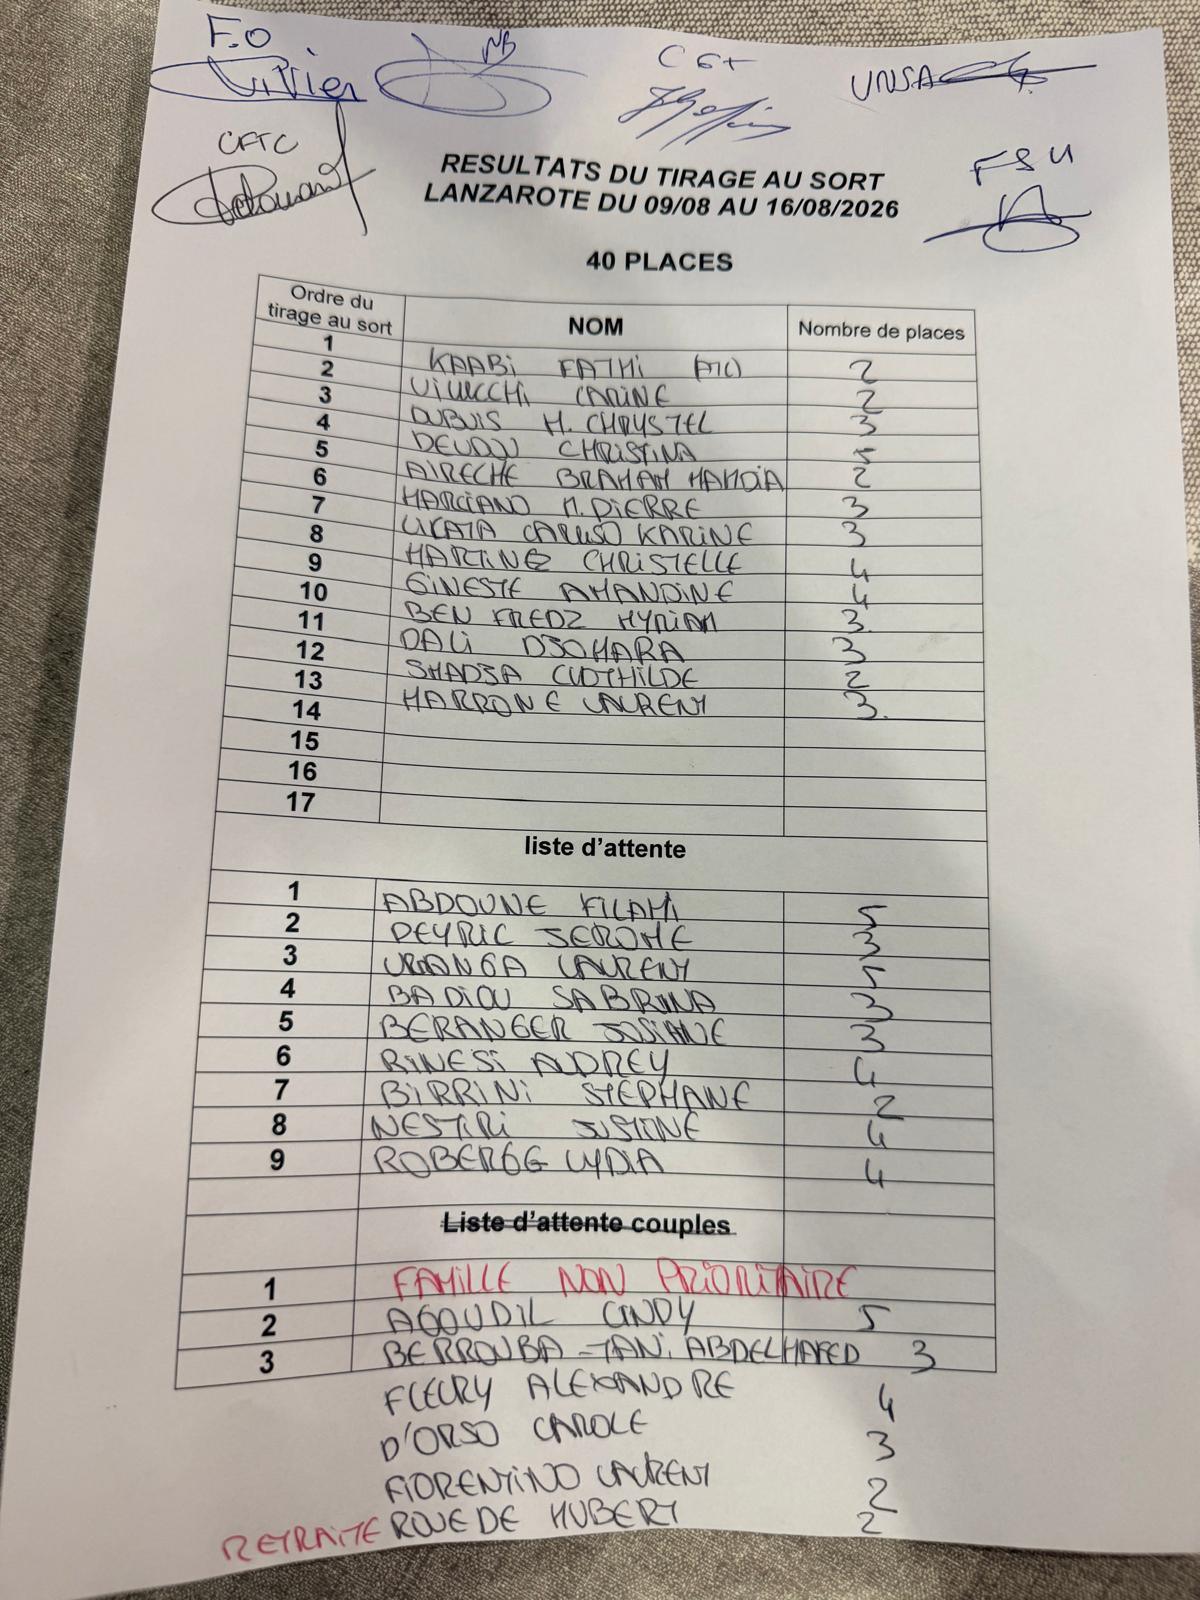 F.O
NB
CGT
UNSA
CFTC
FSU
RESULTATS DU TIRAGE AU SORT
LANZAROTE DU 09/08 AU 16/08/2026
40 PLACES
Ordre du tirage au sort NOM Nombre de places
1 KAABI FATHI 2
2 CARINE 2
3 DUBUIS M. CHRYSTEL 3
4 CHRISTINA 5
5 AIRECHE BRAHAM HAMDIA 2
6 MARCIANO M. PIERRE 3
7 LICATA CARUSO KARINE 3
8 MARTINEZ CHRISTELLE 4
9 GINESTE AMANDINE 4
10 BEN FREDJ MYRIAM 3
11 DALI DJOHARA 3
12 CLOTHILDE 2
13 MARRONE LAURENT 3
14
15
16
17
liste d'attente
1 ABDOUNE 5
2 PEYRIC JEROME 3
3 URANGA LAURENT 5
4 BADIOU SABRINA 3
5 BERANGER JOSIANE 3
6 RINESI AUDREY 4
7 BIRRINI STEPHANE 2
8 NESTIRI JUSTINE 4
9 LYDIA 4
Liste d'attente couples
1 FAMILLE NON PRIORITAIRE
2 AGOUDIL CINDY 5
3 BERROUBA-TANI ABDELHAFED 3
FLEURY ALEXANDRE 4
D'ORSO CAROLE 3
FIORENTINO LAURENT 2
RETRAITE HUBERT 2